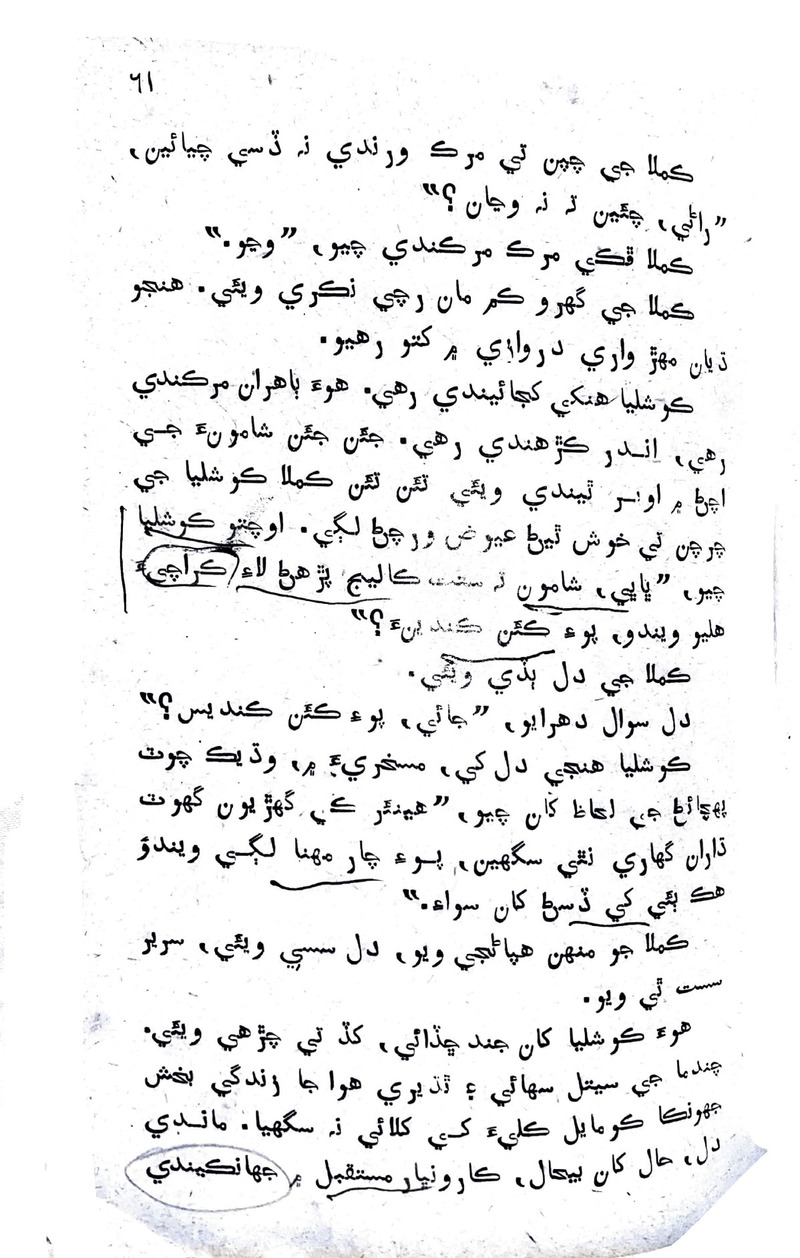 ٦١
ڪملا جي چپن تي مرڪ ورندي نہ ڏسي چيائين،
”راڻي، چئين تہ نہ وڃان؟“
ڪملا ڦڪي مرڪ مرڪندي چيو، ”وڃو.“
ڪملا جي گهرو ڪم مان رچي نڪري ويئي. هنجو
ڌيان مهڙ واري دروازي ۾ کتو رهيو.
ڪوشليا هنکي کجائيندي رهي. هوءَ ٻاهران مرڪندي
رهي، اندر ڪڙهندي رهي. جئن جئن شامونءَ جي
اچڻ ۾ اوير ٿيندي ويئي تئن تئن ڪملا ڪوشليا جي
چرچن تي خوش ٿيڻ عيوض ورچڻ لڳي. اوچتو ڪوشليا
چيو، ”ڀاڀي، شامون تہ سڀت ڪاليج پڙهڻ لاءِ ڪراچيءَ
هليو ويندو، پوءِ ڪئن ڪندينءَ؟“
ڪملا جي دل ٻڏي ويئي.
دل سوال دهرايو، ”جاڻي، پوءِ ڪئن ڪنديس؟“
ڪوشليا هنجي دل کي، مسخريءَ ۾، وڌيڪ چوٽ
پهچائڻ جي لحاظ کان چيو، ”هينئر ڪي گهڙيون گهوٽ
ڌاران گهاري نٿي سگهين، پوءِ چار مهنا لڳي ويندوَ
هڪ ٻئي کي ڏسڻ کان سواءِ.“
ڪملا جو منهن هيسائجي ويو، دل سسي ويئي، سرير
سست ٿي ويو.
هوءَ ڪوشليا کان جند ڇڏائي، کڏ تي چڙهي ويئي.
چندما جي سيتل سهائي ۽ ٿڌيري هوا جا زندگي بخش
جهونڪا ڪومايل ڪليءَ کي کلائي نہ سگهيا. ماندي
دل، حال کان بيحال، ڪارونيار مستقبل ۾ جهانڪيندي